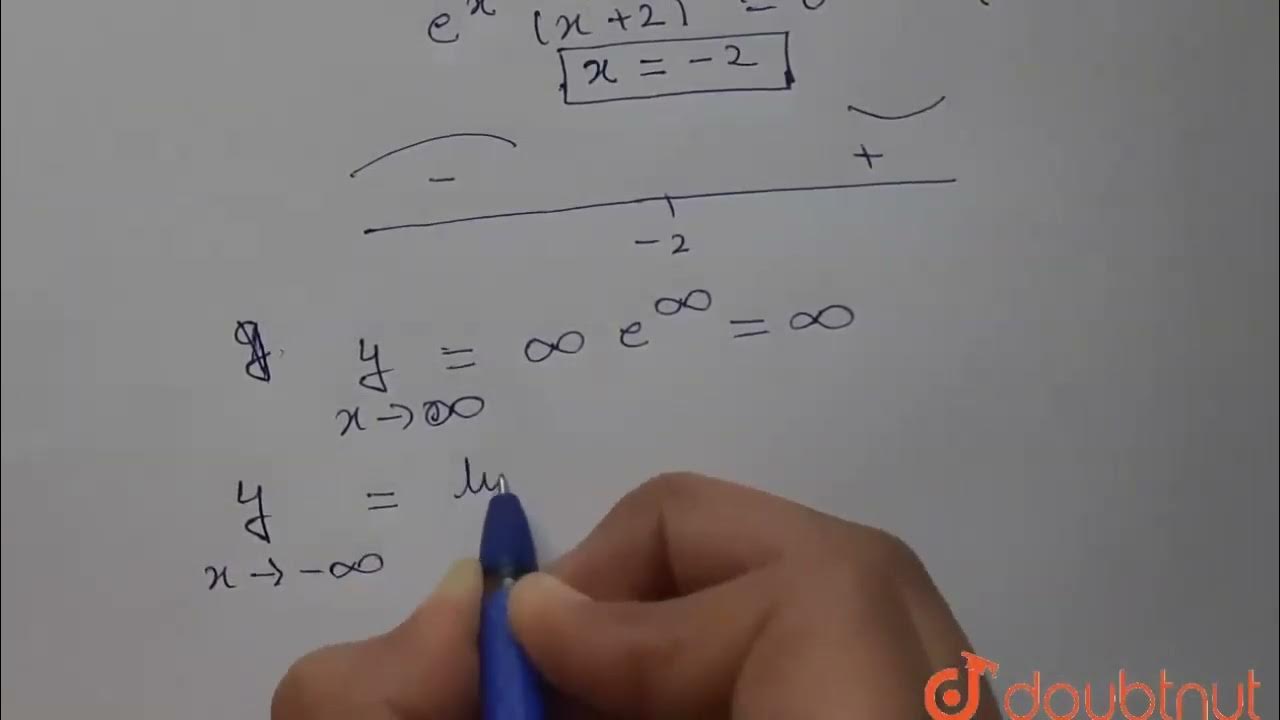 e^x (x+2) = 0
x = -2
- +
-2
y = ∞ e^∞ = ∞
x → ∞
y =
x → -∞
doubtnut